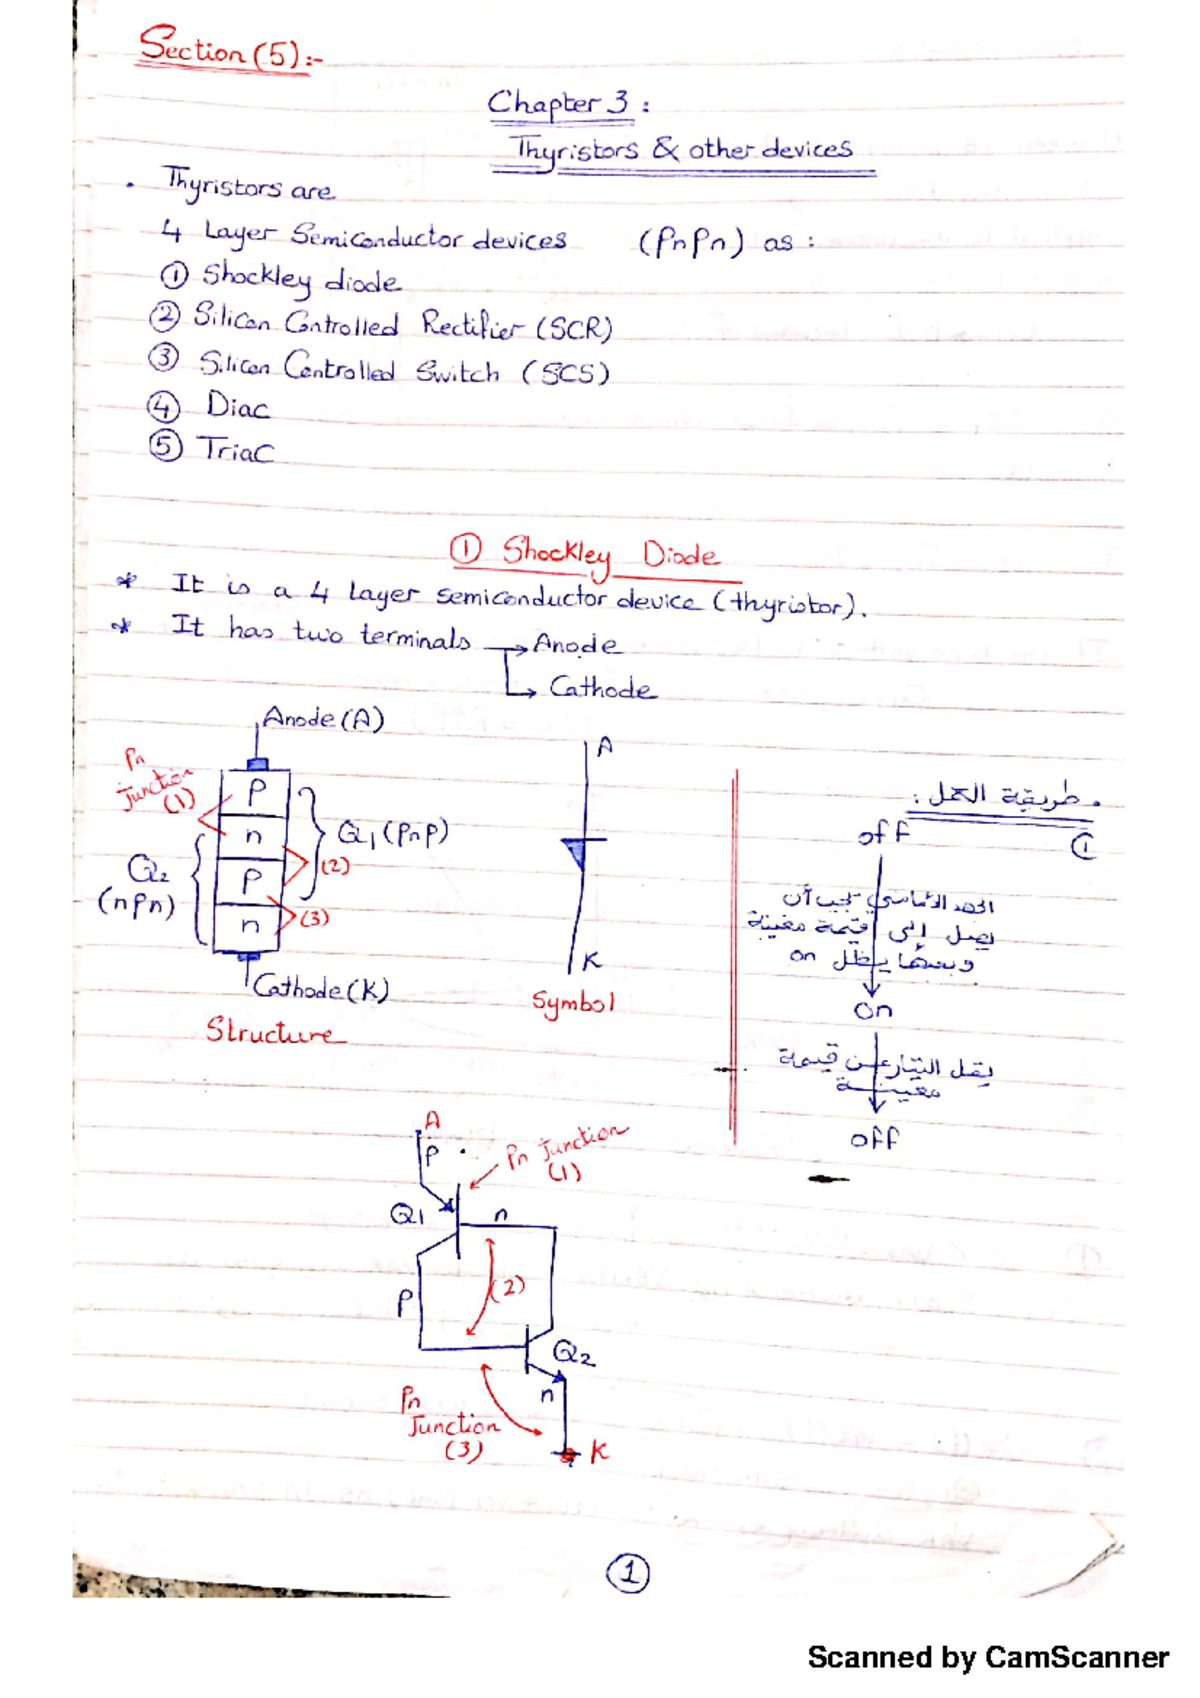 Section (5) :-
Chapter 3 :
Thyristors & other devices
. Thyristors are
4 Layer Semiconductor devices (PnPn) as :
① Shockley diode
② Silicon Controlled Rectifier (SCR)
③ Silicon Controlled Switch (SCS)
④ Diac
⑤ TriaC
① Shockley Diode
* It is a 4 layer semiconductor device (thyristor).
* It has two terminals → Anode
↳ Cathode
Anode (A)
Pn
Junction
(1)
P
n
P
n
Q1 (PnP)
(2)
Q2
(nPn)
(3)
Cathode (K)
Structure
A
K
Symbol
. طريقة العمل :
①
off
الجهد الأمامي يجب أن
يصل إلى قيمة معينة
وبعدها يظل on
on
يقل التيار عن قيمة
معينة
off
A
P
Pn Junction
(1)
Q1
n
(2)
P
Q2
n
Pn
Junction
(3)
K
1
Scanned by CamScanner